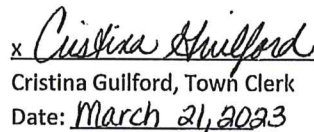 x Cristina Guilford
Cristina Guilford, Town Clerk
Date: March 21, 2023